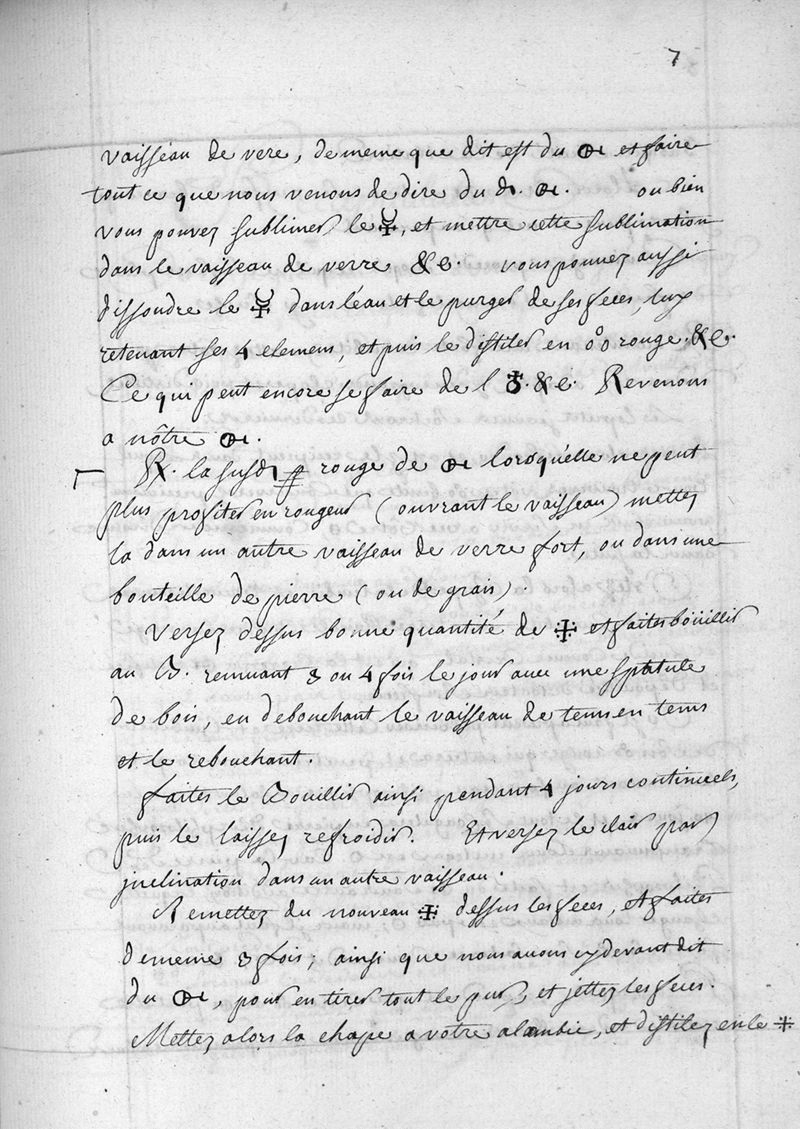 7
vaisséau de vere, de meme que dit est du 🜕 et faire
tout ce que nous venons de dire du d. 🜕. ou bien
vous pouvez sublimer le ☿, et mettre cette sublimation
dans le vaisseau de verre &c. vous pouvez aussi
dissoudre le ☿ dans l'éau et le purger de ses feces, luy
retenant ses 4 elemens, et puis le distiler en o°o rouge. &c.
Ce qui peut encore se faire de l ♁. &c. Revenons
a nôtre 🜕.
℞. la susd. rouge de 🜕 lorsqu'elle ne peut
plus profiter en rougeur (ouvrant le vaisseau) mettez
la dans un autre vaisseau de verre fort, ou dans une
bouteille de pierre (ou de grais).
Versez dessus bonne quantité de 🜊 et faites boüillir
au B. remuant 3 ou 4 fois le jour avec une sptitule
de bois, en debouchant le vaisseau de tems en tems
et le rebouchant.
faites le Bouillir ainsi pendant 4 jours continuels,
puis le laissez refroidir. Et versez le clair par
jnclination dans un autre vaisseau.
Remettez du nouveau 🜊 dessus les feces, et faites
de meme 3 fois; ainsi que nous avons cy devant dit
du 🜕, pour en tirer tout le pur, et jettez les feces.
Mettez alors la chape a votre alambic, et distilez en le 🜊